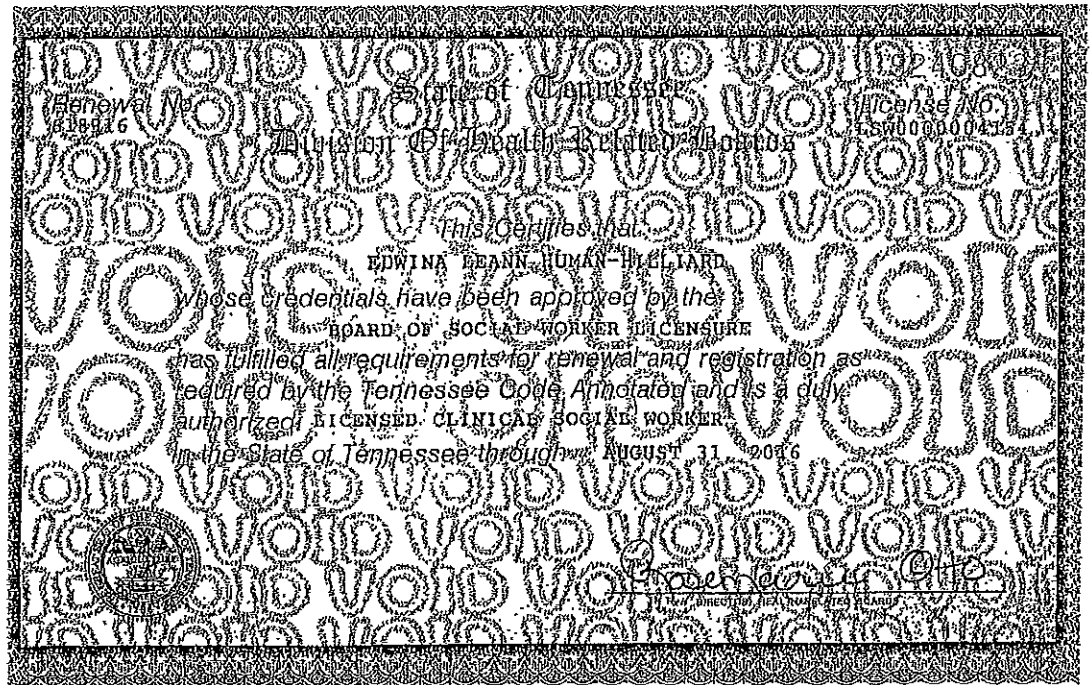 State of Tennessee
Renewal No.
License No.
818916
Division Of Health Related Boards
This Certifies that
EDWINA LEANN HUMAN-HILLIARD
whose credentials have been approved by the
BOARD OF SOCIAL WORKER LICENSURE
has fulfilled all requirements for renewal and registration as
required by the Tennessee Code Annotated and is a duly
authorized LICENSED CLINICAL SOCIAL WORKER
in the State of Tennessee through AUGUST 31, 2016
VOID